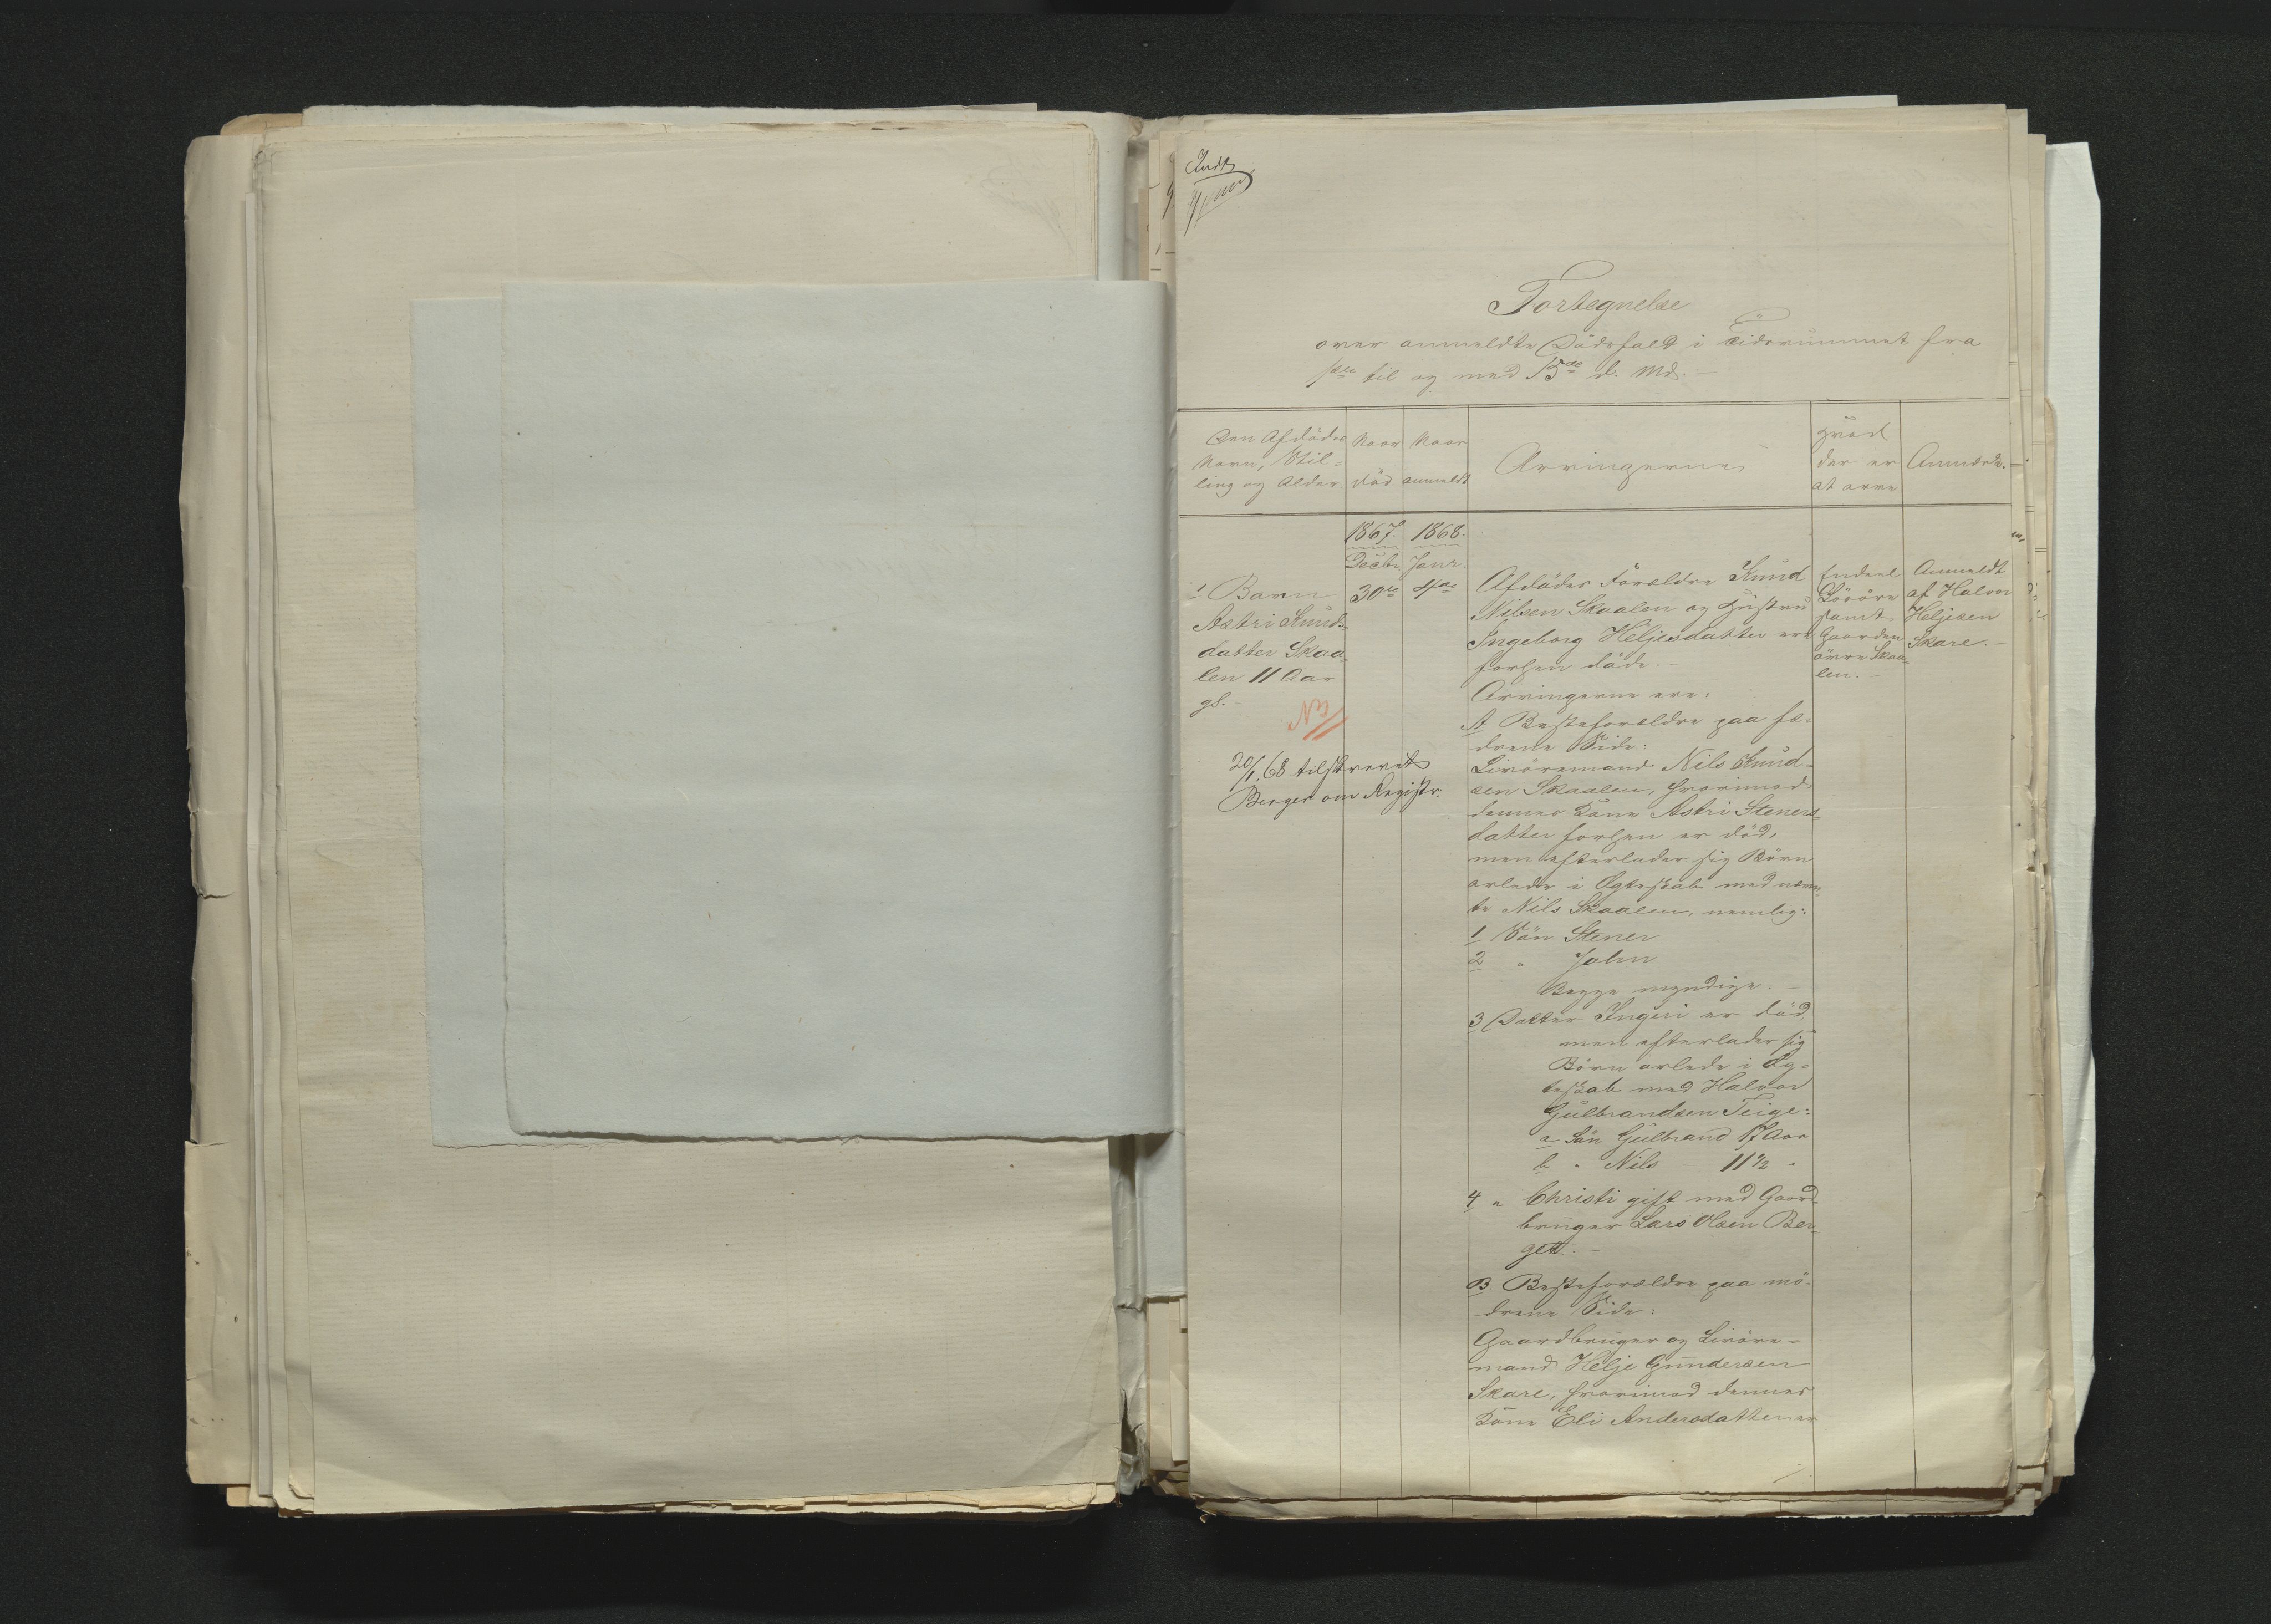 Indk
Fortegnelse
over anmeldte Dödsfald i Tidsrummet fra
1ste til og med 15de d. Md. -
Den Afdödes
Navn, Stil-
ling og Alder
Naar
död
Naar
anmeldt
Arvingerne
Hvad
der er
at arve
Anmærkn.
1867.
Decbr.
30te
1868.
Janr.
4de
1 Barn
Astri Knuds-
datter Skaa-
len 11 Aar
gl.
20/1 68 tilskrevet
Berger om Registr.
Afdödes Forældre Knud
Nilsen Skaalen og Hustru
Ingeborg Heljesdatter ere
forhen döde. -
Arvingerne ere:
A Besteforældre paa fæ-
drene Side:
Livöremand Nils Knud-
sen Skaalen, hvorimod
dennes Kone Astri Steners-
datter forhen er död,
men efterlader sig Börn
avlede i Ægteskab med nævn-
te Nils Skaalen, nemlig:
1 Sön Stener
2 " John
Begge myndige. -
3 Datter Ingeri er död,
men efterlader sig
Börn avlede i Æg-
teskab med Halvor
Gulbrandsen Teige:
a Sön Gulbrand 17 Aar
b " Nils - 11 1/2 "
4 " Christi gift med Gaard-
bruger Lars Olsen Ber-
get. -
B. Besteforældre paa mö-
drene Side:
Gaardbruger og Livöre-
mand Helje Gundersen
Skare, hvorimod dennes
Kone Eli Andersdatter er
Endeel
Lösöre
samt
Gaarden
övre Skaa-
len. -
Anmeldt
af Halvor
Heljesen
Skare. -